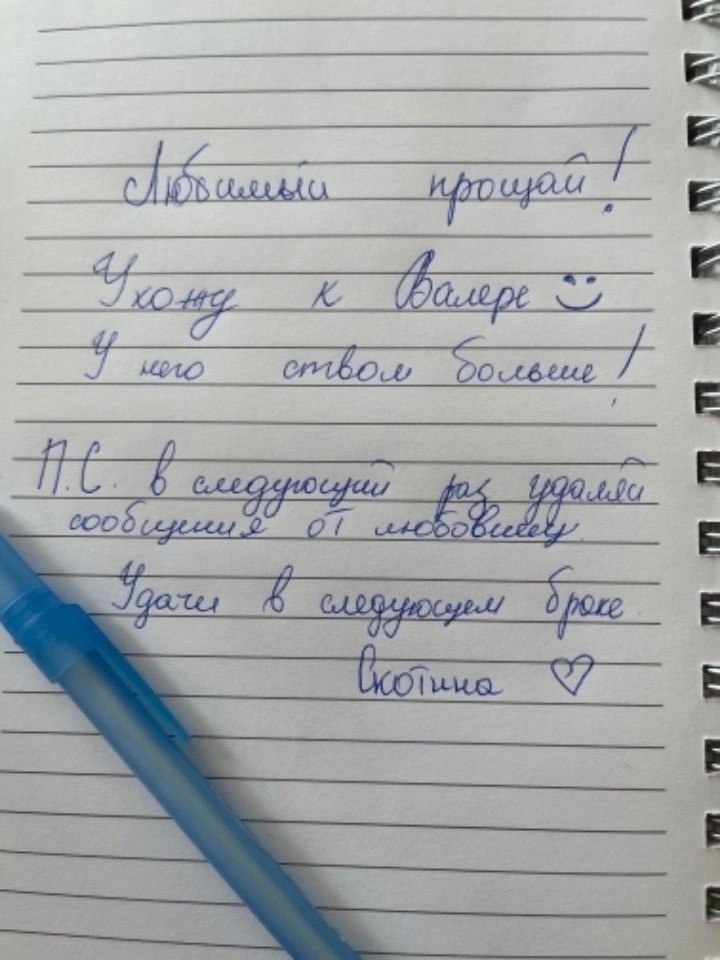 Любимый прощай!
Ухожу к Валере
У него ствол больше!
П.С. в следующий раз удаляй
сообщения от любовниц
Удачи в следующем браке
Скотина